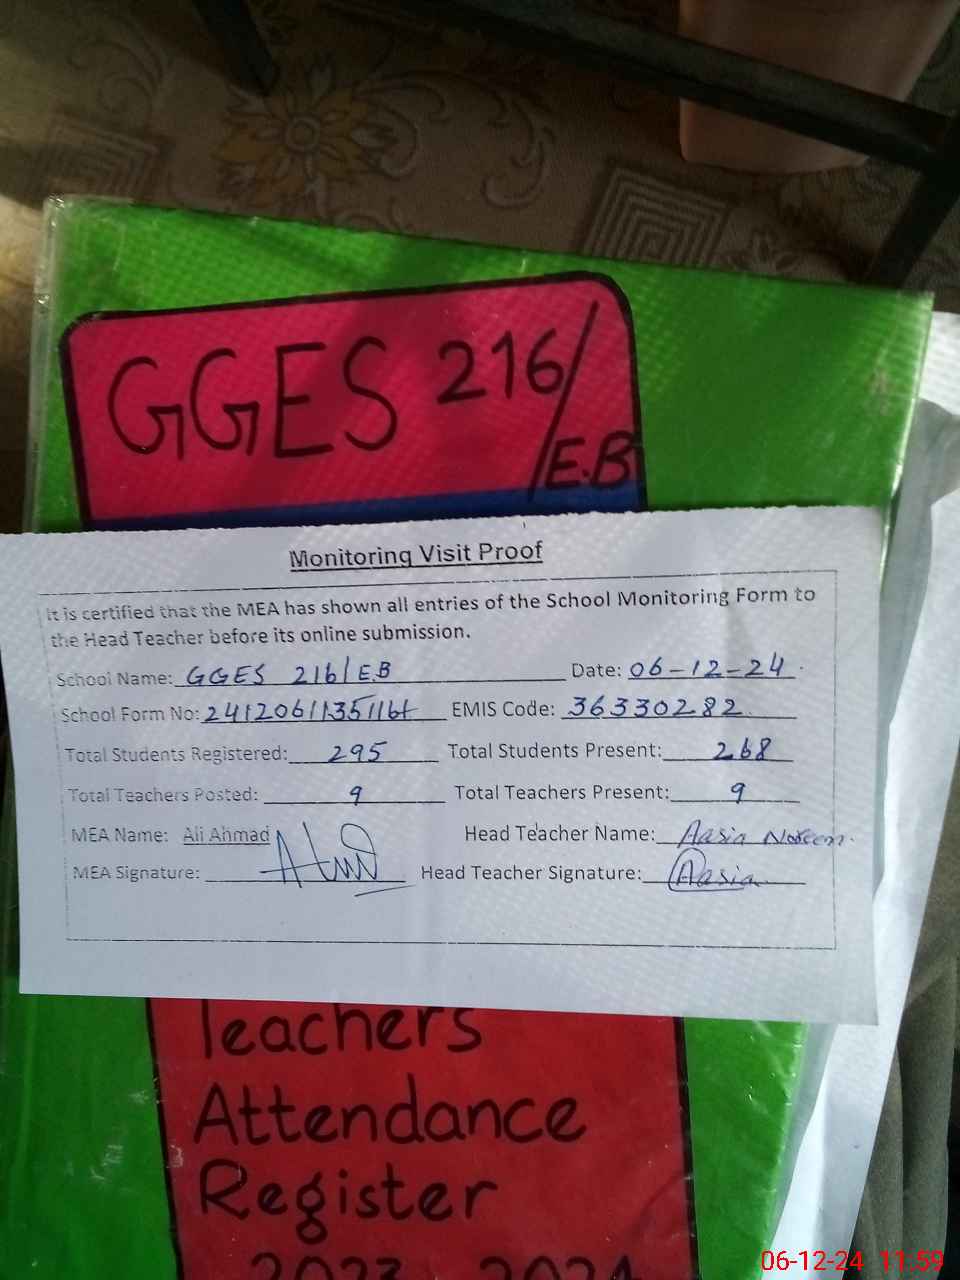 GGES 216/E.B
Monitoring Visit Proof
It is certified that the MEA has shown all entries of the School Monitoring Form to
the Head Teacher before its online submission.
School Name: GGES 216/E.B Date: 06-12-24
School Form No: EMIS Code: 36330282
Total Students Registered: 295 Total Students Present: 268
Total Teachers Posted: 9 Total Teachers Present: 9
MEA Name: Ali Ahmad Head Teacher Name: Aasia Noreen.
MEA Signature: Head Teacher Signature: Aasia
Teachers
Attendance
Register
2023 - 2024
06-12-24 11:59